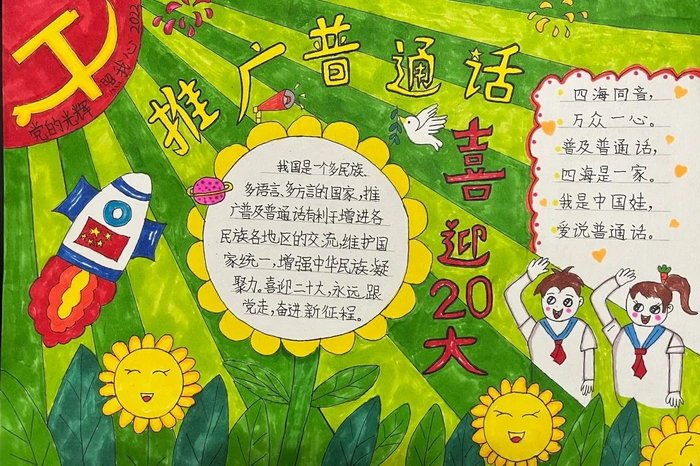 党的光辉
照我心 2022
推广普通话
喜迎20大
我国是一个多民族、
多语言、多方言的国家,推
广普及普通话有利于增进各
民族各地区的交流,维护国
家统一,增强中华民族凝
聚力。喜迎二十大,永远跟
党走,奋进新征程。
四海同音,
万众一心。
普及普通话,
四海是一家。
我是中国娃,
爱说普通话。